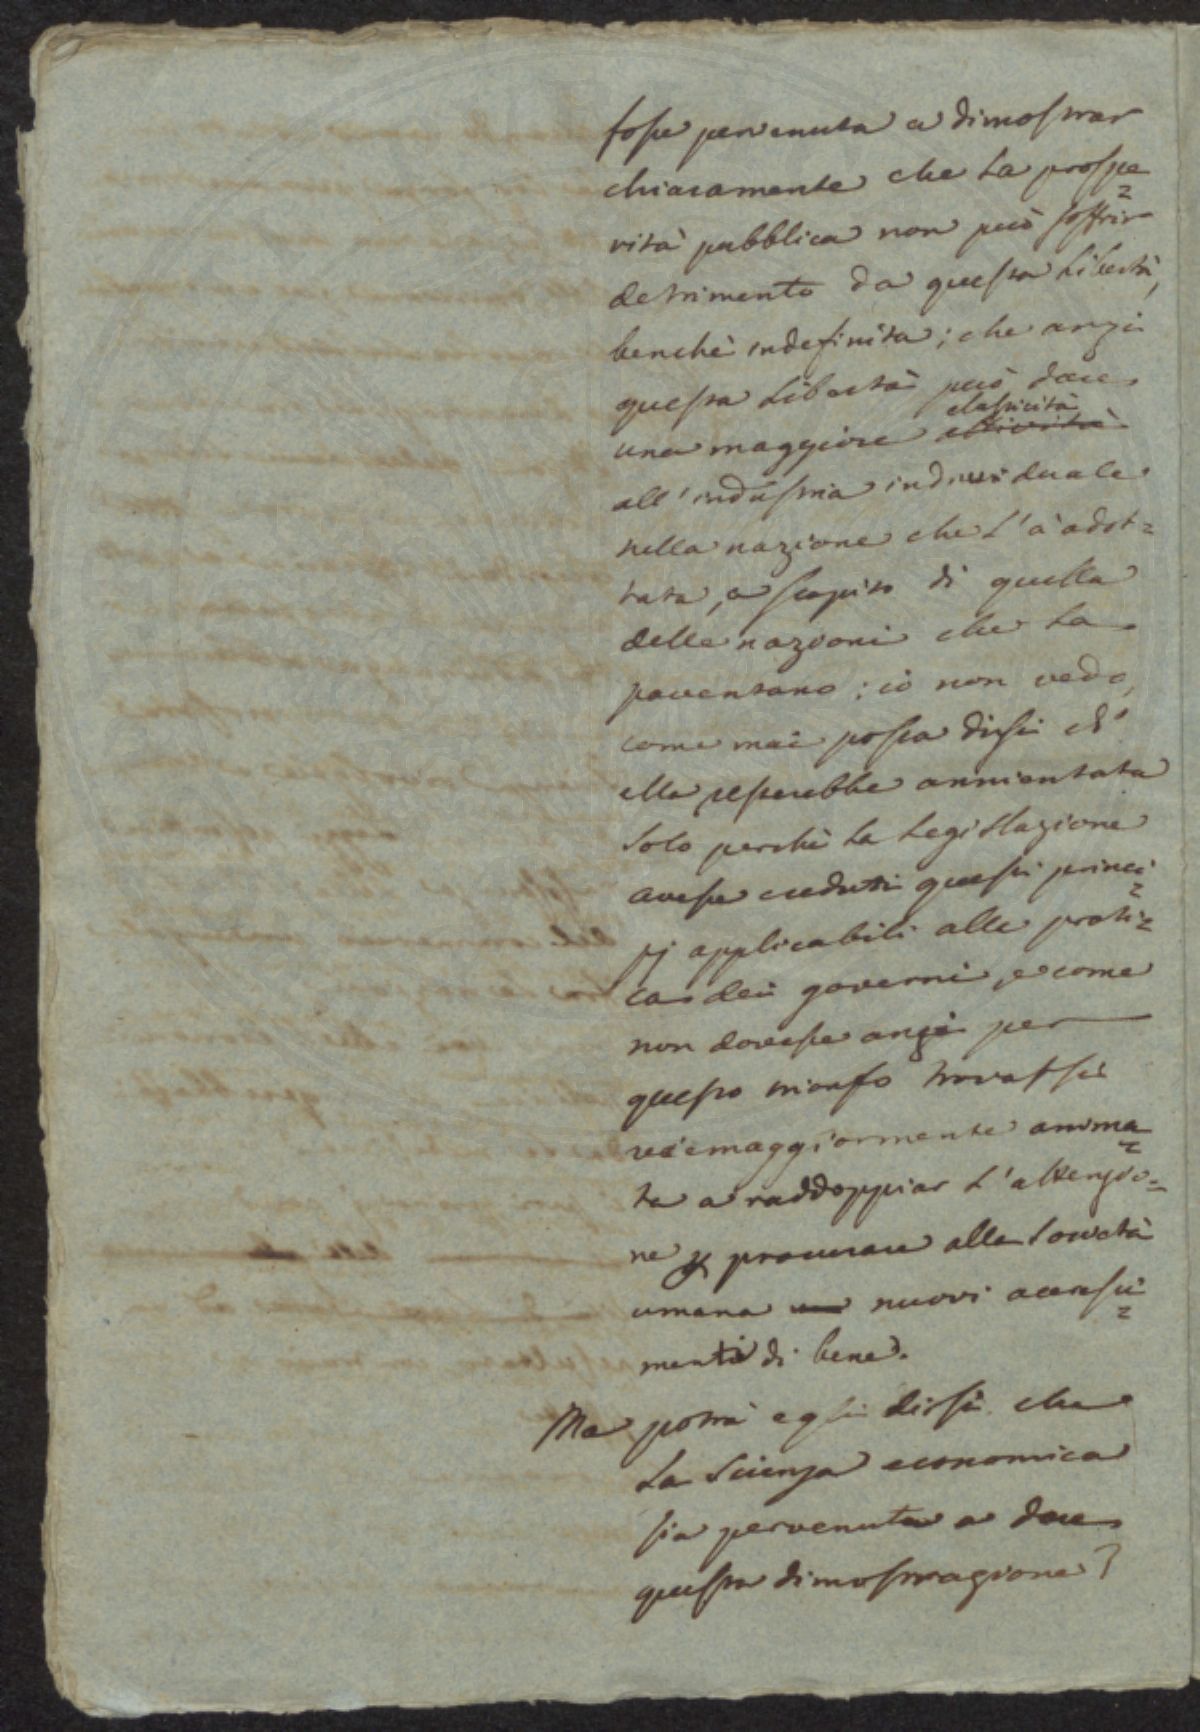 fosse pervenuta a dimostrar
chiaramente che la prospe=
rità pubblica non può soffrir
detrimento da questa libertà,
benchè indefinita; che anzi
questa libertà può dare
una maggiore elasticità attività
all'industria individuale
nella nazione che l'à adot=
tata, a scapito di quella
delle nazioni che la
paventano; io non vedo,
come mai possa dirsi ch'
ella resterebbe annientata
solo perchè la legislazione
avesse creduti questi princi=
pj applicabili alla prati=
ca dei governi, e come
non dovesse anzi per
questo trionfo trovarsi
maggiormente anima=
ta a raddoppiar l'attenzio=
ne p procurare alla società
umana nuovi accresci=
menti di bene.
Ma potrà egli dirsi che
la scienza economica
sia pervenuta a dare
questa dimostrazione?